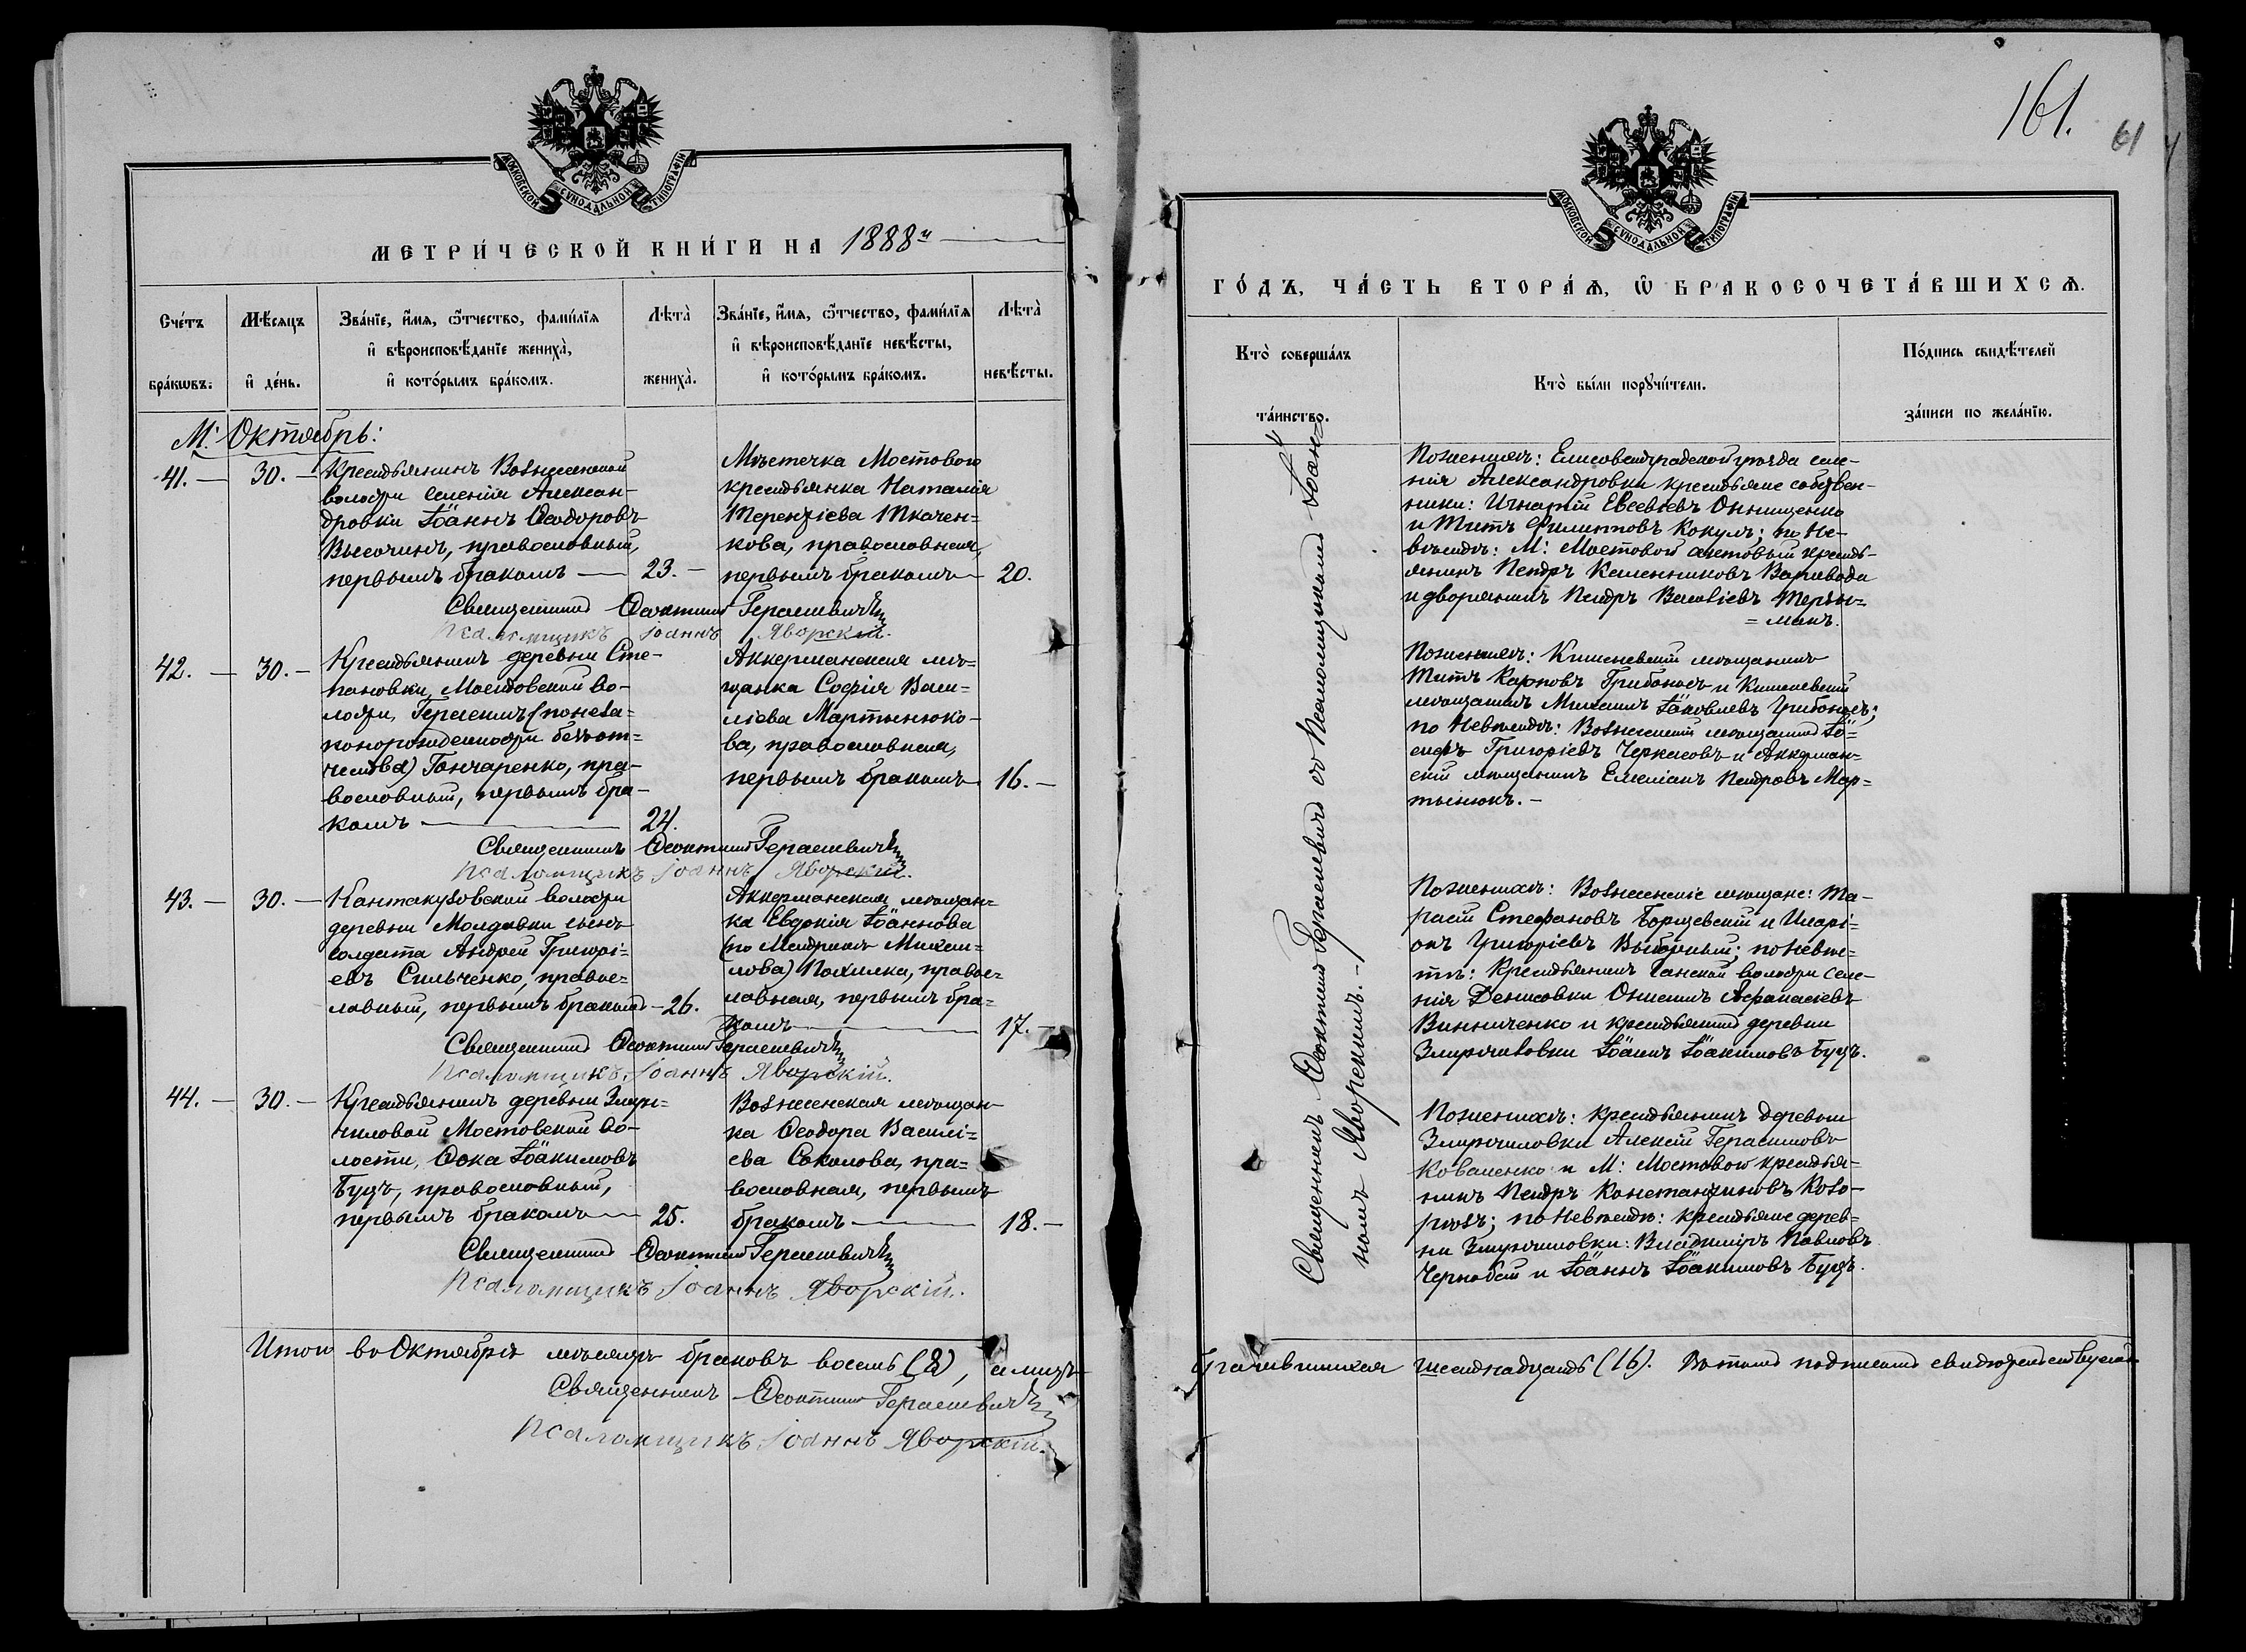 МОСКОВСКОЙ СѴНОДАЛЬНОЙ ТИПОГРАФІИ
МЕТРИ́ЧЕСКОЙ КНИ́ГИ НА 1888й
Сче́тъ бра́кѡвъ.
Мѣ́сяцъ и҆ де́нь.
Зва́нїе, и҆́мя, ѻ҆́тчество, фами́лїя
и҆ вѣроисповѣ́данїе жениха̀,
и҆ кото́рымъ бра́комъ.
Лѣта̀ жениха̀.
Зва́нїе, и҆́мя, ѻ҆́тчество, фами́лїя
и҆ вѣроисповѣ́данїе невѣ́сты,
и҆ кото́рымъ бра́комъ.
Лѣта̀ невѣ́сты.
М: Октябрь:
41. — 30. —
Крестьянинъ Вознесенской
волости селенія Алексан-
дровки Іоаннъ Ѳеодоровъ
Высочинъ, православный,
первымъ бракомъ — 23. —
Мѣстечка Мостового
крестьянка Наталія
Терентіева Ткачен=
кова, православная,
первымъ бракомъ — 20.
Священникъ Ѳеоктистъ Герасевичъ
Псаломщикъ Іоаннъ Яворскій.
42. — 30. —
Крестьянинъ деревни Сте-
пановки, Мостовской во-
лости, Герасимъ (по неза=
конорожденности безъ от=
чества) Гончаренко, пра-
вославный, первымъ бра-
комъ — 24.
Аккерманская мѣ=
щанка Софія Васи=
ліева Мартынюко-
ва, православная,
первымъ бракомъ 16. —
Священникъ Ѳеоктистъ Герасевичъ
Псаломщикъ Іоаннъ Яворскій.
43. — 30. —
Кантакузовской волости
деревни Молдавки сынъ
солдата Андрей Григорі-
евъ Сильченко, правос=
лавный, первымъ бракомъ — 26.
Аккерманская мѣщан=
ка Евдокія Іоаннова
(по Метрикѣ Михаи=
лова) Похилка, правос=
лавная, первымъ бра=
комъ — 17. —
Священникъ Ѳеоктистъ Герасевичъ
Псаломщикъ Іоаннъ Яворскій.
44. — 30. —
Крестьянинъ деревни
Мостовской во-
лости, Ѳока Іоакимовъ
Буцъ, православный,
первымъ бракомъ — 25.
Вознесенская мѣщан-
ка Ѳеодора Василі=
ева Соколова, пра=
вославная, первымъ
бракомъ — 18. —
Священникъ Ѳеоктистъ Герасевичъ
Псаломщикъ Іоаннъ Яворскій.
Итого въ Октябрѣ мѣсяцѣ браковъ восемь (8), а лицъ
Священникъ Ѳеоктистъ Герасевичъ
Псаломщикъ Іоаннъ Яворскій.
161.
61
МОСКОВСКОЙ СѴНОДАЛЬНОЙ ТИПОГРАФІИ
ГО́ДЪ, ЧА́СТЬ ВТОРА́Ѧ, Ѡ҆ БРАКОСОЧЕТА́ВШИХСѦ.
Кто̀ соверша́лъ та́инство.
Кто̀ бы́ли порꙋчи́тели.
По́дпись свидѣ́телей за́писи по жела́нїю.
Священникъ Ѳеоктистъ Герасевичъ съ Псаломщикомъ Іоан-
номъ Яворскимъ. —
По женихѣ: Елисоветградской уѣзда селе-
нія Александровки крестьяне собствен-
ники: Игнатій Евсевіевъ Онищенко
и Титъ Филиповъ Кокулъ; по Не-
вѣстѣ: М: Мостовой крестья-
янинъ Петръ Варивода
и дворянинъ Петръ Василіевъ
По женихѣ: Кишеневскій мѣщанинъ
Титъ Карповъ Грибаносъ и Кишеневскій
мѣщанинъ Михаилъ Іаковлевъ Грибоносъ;
по Невѣстѣ: Вознесенскій мѣщанинъ Іо=
сифъ Григоріевъ Черкасовъ и Аккерман-
скій мѣщанинъ Емеліанъ Петровъ Мар=
тынюкъ. —
По женихѣ: Вознесенскіе мѣщане: Та-
расій Стефановъ Борщевскій и Иларі-
онъ Григоріевъ Выборный; по Невѣс-
тѣ: Крестьянинъ волости селе-
нія Денисовки Онисимъ Аѳанасіевъ
Винниченко и крестьянинъ деревни
Іоаннъ Іоакимовъ Буцъ.
По женихѣ: крестьянинъ деревни
Алексій Герасимовъ
Коваленко и М: Мостовою крестья=
нинъ Петръ Константиновъ Козо-
рѣзъ; по Невѣстѣ: крестьяне дерев=
ни Владиміръ Павловъ
Чернобай и Іоаннъ Іоакимовъ Буцъ.
брачившихся шестнадцать (16). Въ томъ подписомъ свидѣтельствуемъ